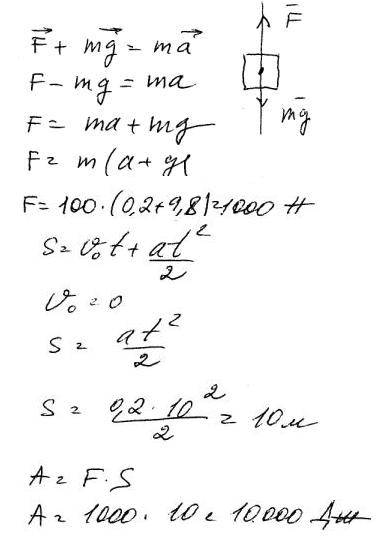 F⃗ + mg⃗ = ma⃗
F̄
F - mg = ma
F = ma + mg
mḡ
F = m(a + g)
F = 100 · (0,2 + 9,8) = 1000 Н
S = v₀t + at²/2
v₀ = 0
S = at²/2
S = 0,2 · 10²/2 = 10 м
A = F · S
A = 1000 · 10 = 10000 Дж